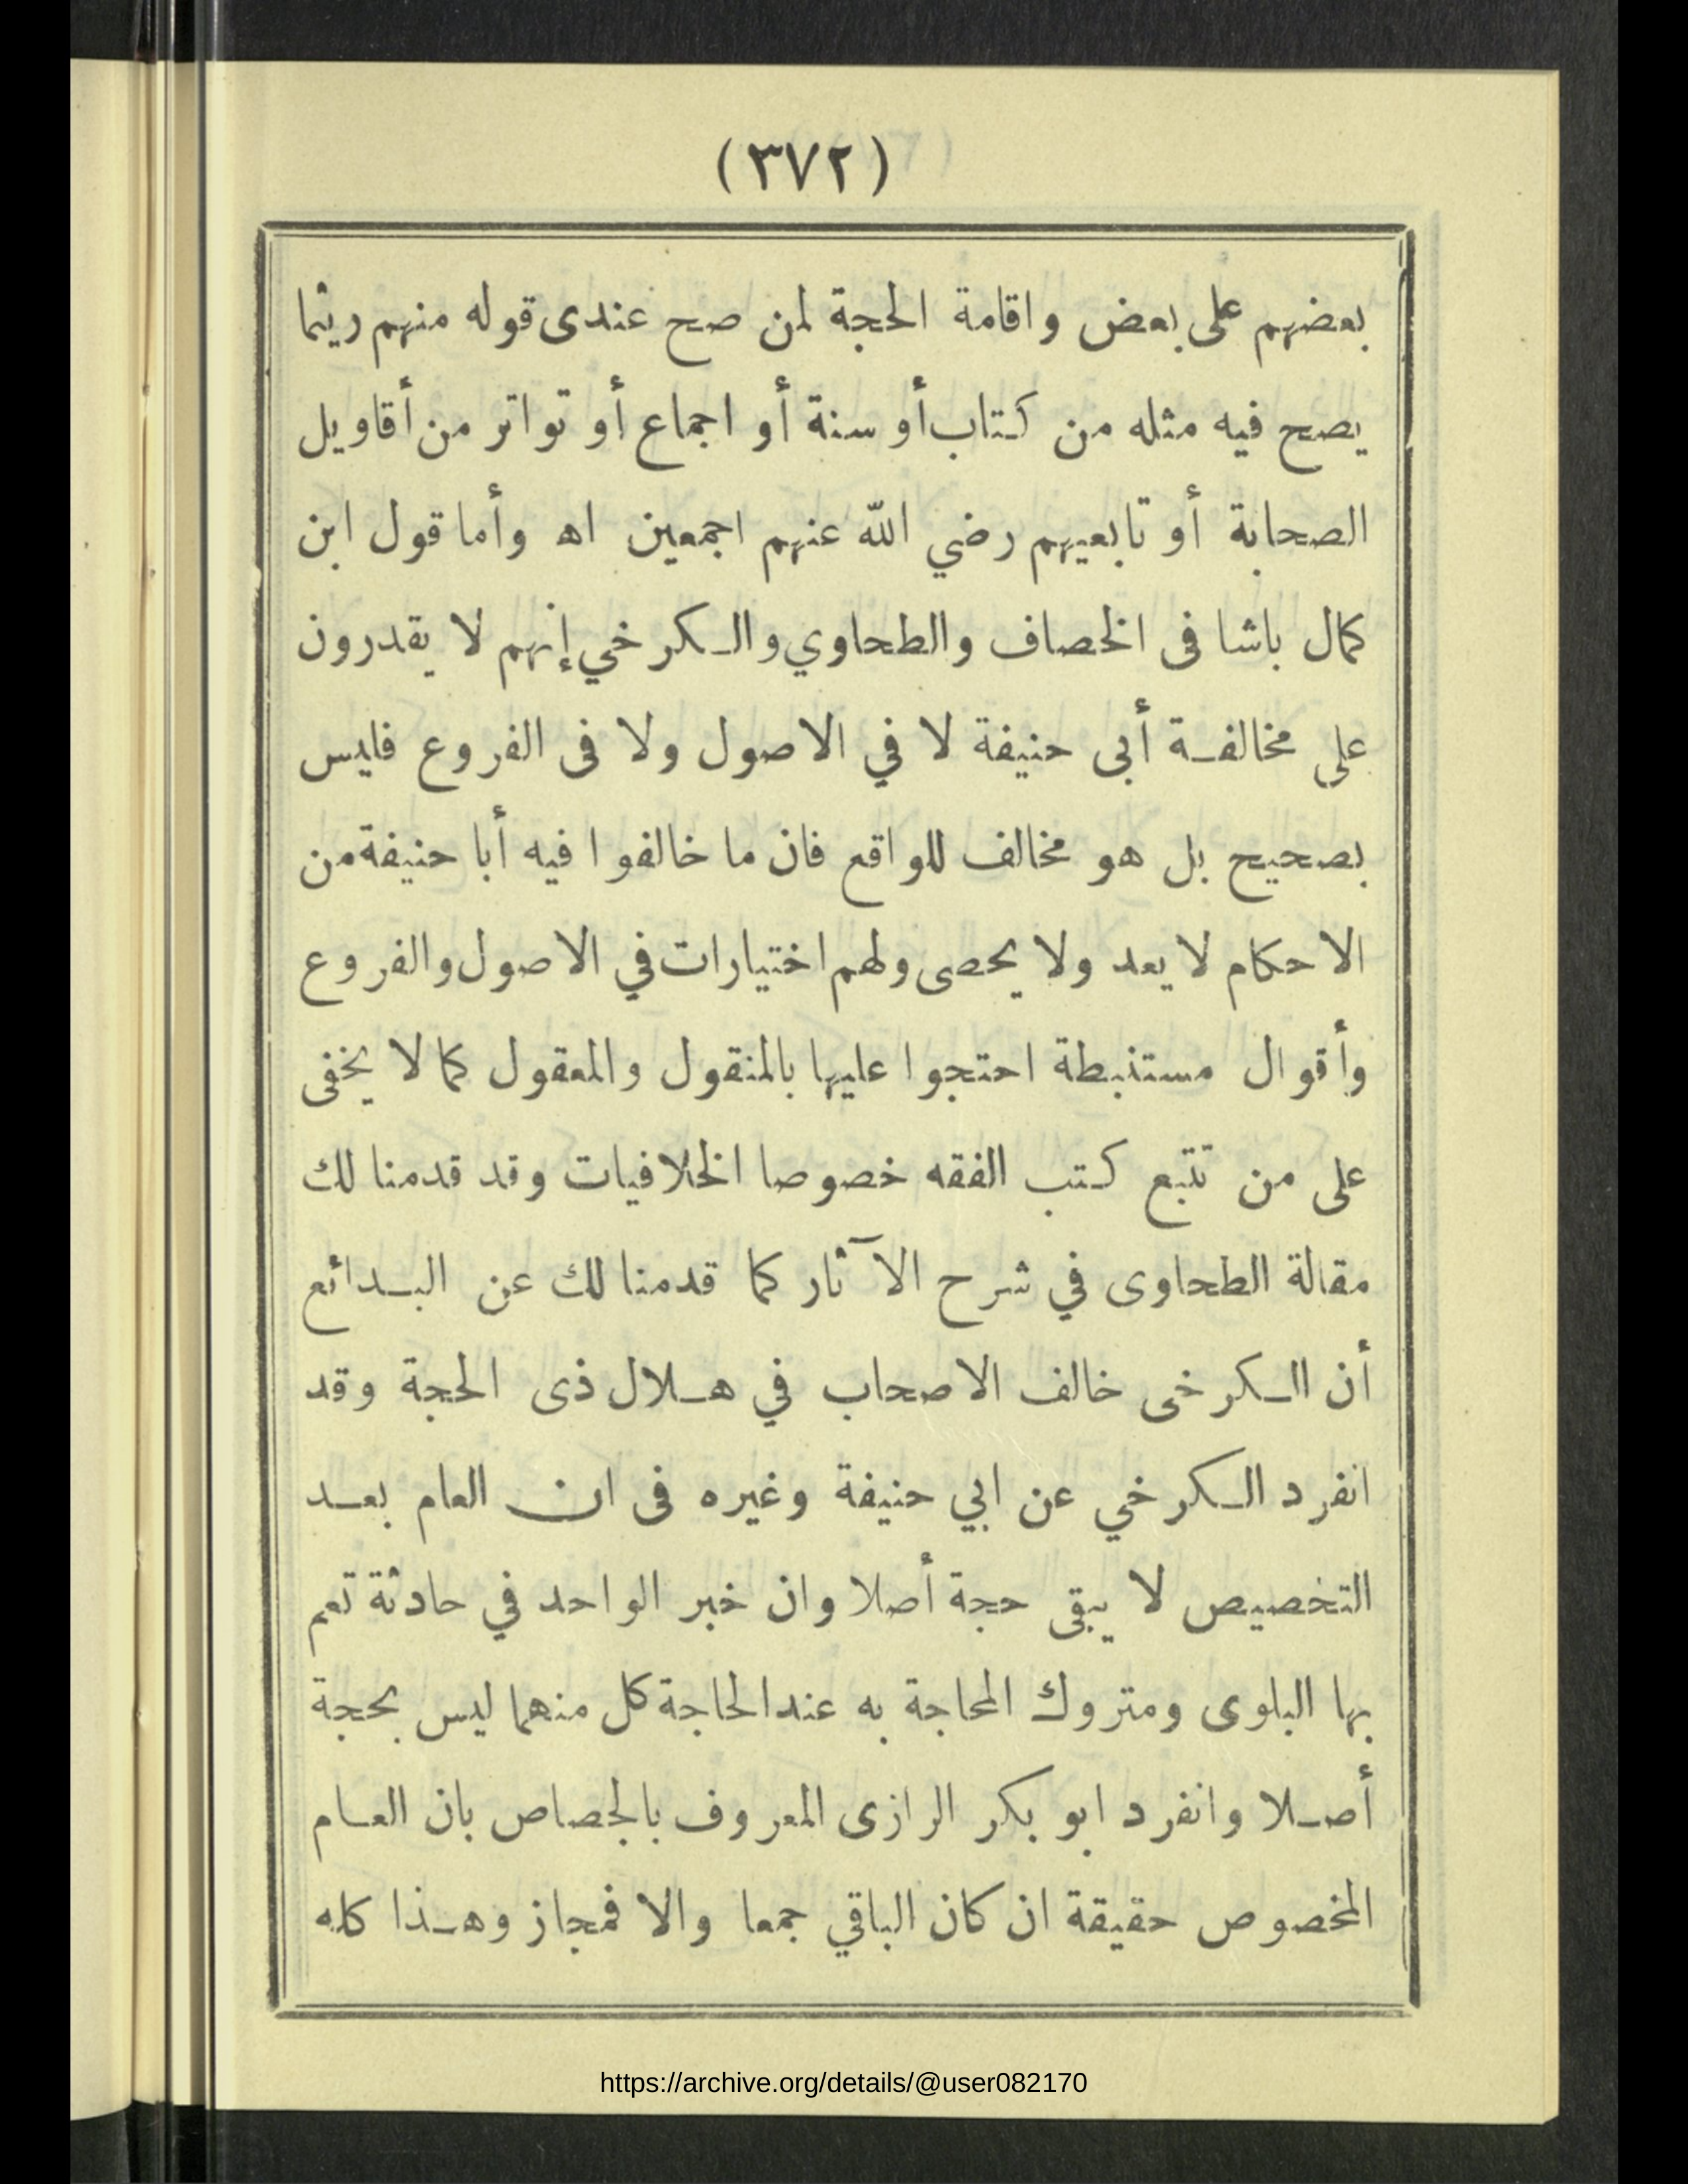 (٣٧٢)
بعضهم على بعض واقامة الحجة لمن صح عندى قوله منهم ريثما
يصح فيه مثله من كتاب أو سنة أو اجماع أو تواتر من أقاويل
الصحابة أو تابعيهم رضي الله عنهم اجمعين اه وأما قول ابن
كمال باشا فى الخصاف والطحاوي والكرخي إنهم لا يقدرون
على مخالفة أبى حنيفة لا في الاصول ولا فى الفروع فليس
بصحيح بل هو مخالف للواقع فان ما خالفوا فيه أبا حنيفة من
الاحكام لا يعد ولا يحصى ولهم اختيارات في الاصول والفروع
وأقوال مستنبطة احتجوا عليها بالمنقول والمعقول كما لا يخفى
على من تتبع كتب الفقه خصوصا الخلافيات وقد قدمنا لك
مقالة الطحاوى في شرح الآثار كما قدمنا لك عن البدائع
أن الكرخى خالف الاصحاب في هلال ذى الحجة وقد
انفرد الكرخي عن ابي حنيفة وغيره فى ان العام بعد
التخصيص لا يبقى حجة أصلا وان خبر الواحد في حادثة تعم
بها البلوى ومتروك المحاجة به عند الحاجة كل منهما ليس بحجة
أصلا وانفرد ابو بكر الرازى المعروف بالجصاص بان العام
المخصوص حقيقة ان كان الباقي جمعا والا فمجاز وهذا كله
https://archive.org/details/@user082170